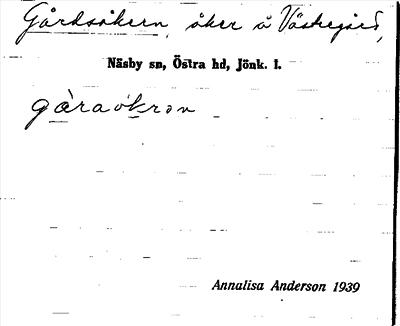 Gårdsåkern, åker å Västregård,
Näsby sn, Östra hd, Jönk. l.
gàraòkrən
Annalisa Anderson 1939